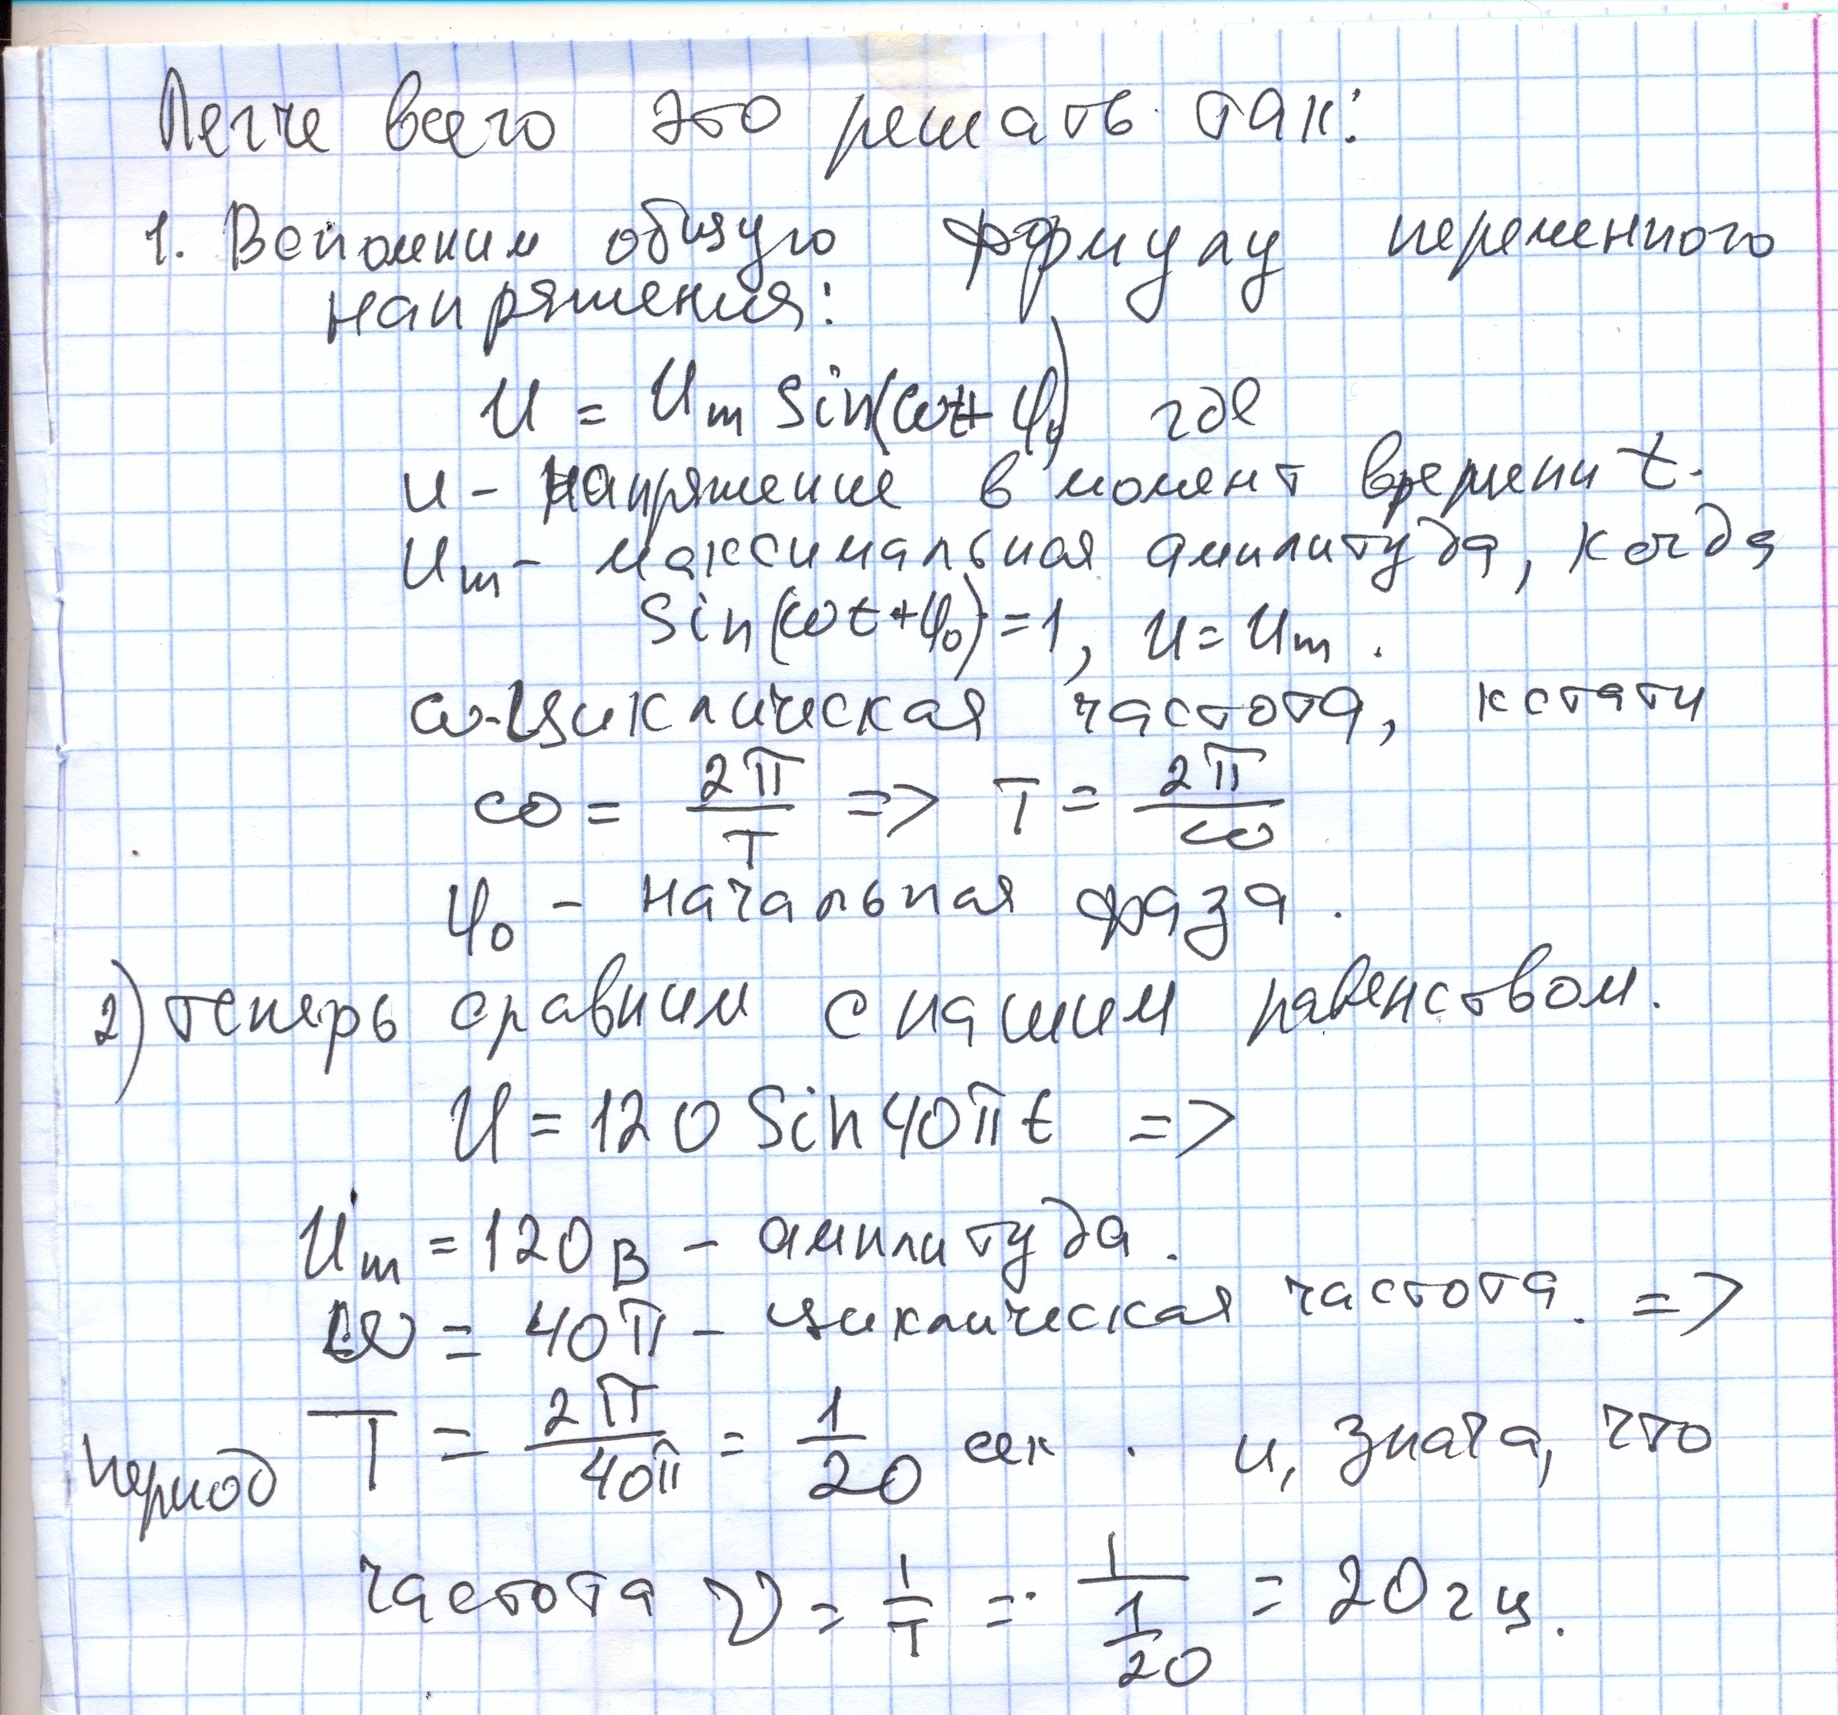 Легче всего это решать так:
1. Вспомним общую формулу переменного
напряжения:
U = Um Sin(ωt + φ0) где
U - напряжение в момент времени t.
Um - максимальная амплитуда, когда
Sin(ωt+φ0) = 1, U = Um.
ω - циклическая частота, кстати
ω = 2π/T => T = 2π/ω
φ0 - начальная фаза.
2) теперь сравним с нашим равенством.
U = 120 Sin 40πt =>
Um = 120 В - амплитуда.
ω = 40π - циклическая частота. =>
период T = 2π/40π = 1/20 сек. и, зная, что
частота ν = 1/T = 1/(1/20) = 20 гц.